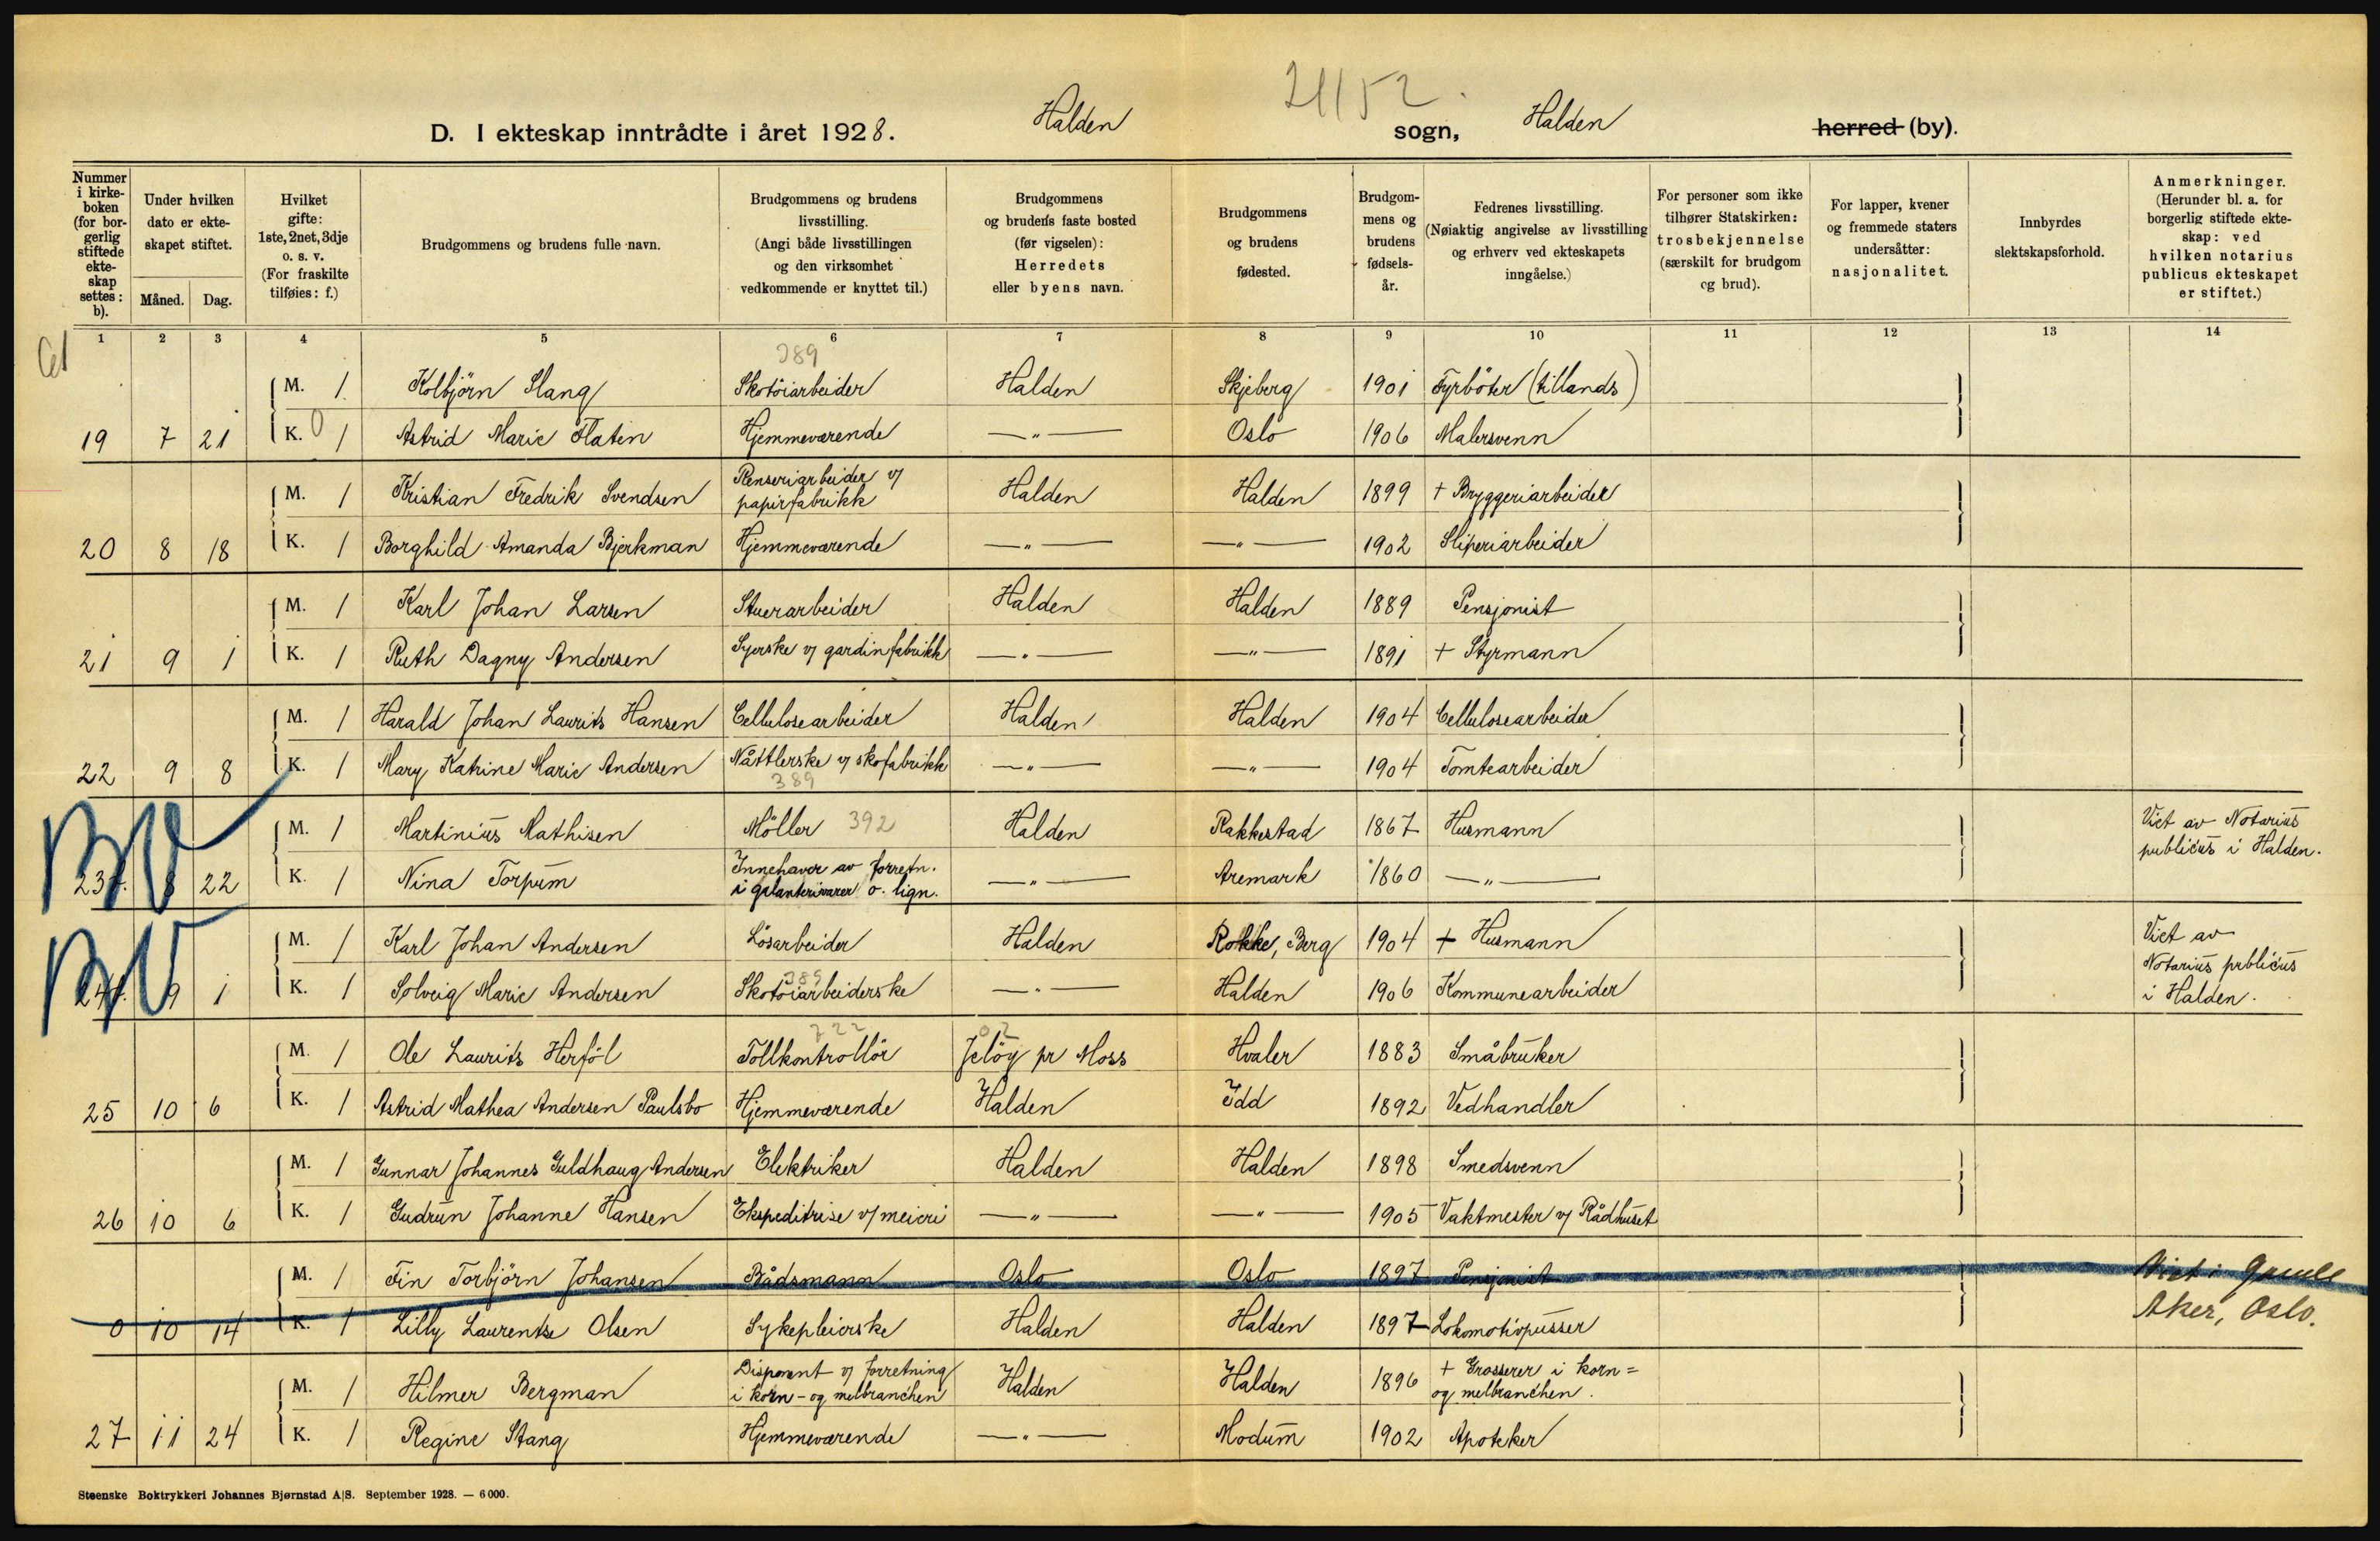 21152.
D. I ekteskap inntrådte i året 1928. Halden sogn, Halden herred (by).
Nummer i kirkeboken (for borgerlig stiftede ekteskap settes: b).
Under hvilken dato er ekteskapet stiftet.
Måned. Dag.
Hvilket gifte: 1ste, 2net, 3dje o. s. v. (For fraskilte tilføies: f.)
Brudgommens og brudens fulle navn.
Brudgommens og brudens livsstilling. (Angi både livsstillingen og den virksomhet vedkommende er knyttet til.)
Brudgommens og brudens faste bosted (før vigselen): Herredets eller byens navn.
Brudgommens og brudens fødested.
Brudgommens og brudens fødselsår.
Fedrenes livsstilling. (Nøiaktig angivelse av livsstilling og erhverv ved ekteskapets inngåelse.)
For personer som ikke tilhører Statskirken: trosbekjennelse (særskilt for brudgom og brud).
For lapper, kvener og fremmede staters undersåtter: nasjonalitet.
Innbyrdes slektskapsforhold.
Anmerkninger. (Herunder bl. a. for borgerlig stiftede ekteskap: ved hvilken notarius publicus ekteskapet er stiftet.)
1 2 3 4 5 6 7 8 9 10 11 12 13 14
389
M. 1 Kolbjörn Slang Skotöiarbeider Halden Skjeberg 1901 Fyrböter (tillands)
19 7 21 K. 0 1 Astrid Marie Flaten Hjemmeværende —"— Oslo 1906 Malersvenn
M. 1 Kristian Fredrik Svendsen Renseriarbeider v/ papirfabrikk Halden Halden 1899 + Bryggeriarbeider
20 8 18 K. 1 Borghild Amanda Bjerkman Hjemmeværende —"— —"— 1902 Sliperiarbeider
M. 1 Karl Johan Larsen Stuerarbeider Halden Halden 1889 Pensjonist
21 9 1 K. 1 Ruth Dagny Andersen Syerske v/ gardinfabrikk —"— —"— 1891 + Styrmann
M. 1 Harald Johan Laurits Hansen Cellulosearbeider Halden Halden 1904 Cellulosearbeider
22 9 8 K. 1 Mary Katrine Marie Andersen Nåttlerske v/ skofabrikk —"— —"— 1904 Tomtearbeider
389
BV
M. 1 Martinius Mathisen Möller 392 Halden Rakkestad 1867 Husmann Viet av Notarius publicus i Halden.
23b. 8 22 K. 1 Nina Torpum Innehaver av forretn. i galanterivarer o. lign. —"— Aremark 1860 —"—
BV
M. 1 Karl Johan Andersen Lösarbeider Halden Rokke, Berg 1904 + Husmann Viet av Notarius publicus i Halden.
24b. 9 1 K. 1 Solveig Marie Andersen Skotöiarbeiderske 389 —"— Halden 1906 Kommunearbeider
722 02
M. 1 Ole Laurits Herföl Tollkontrollör Jelöy pr Moss Hvaler 1883 Småbruker
25 10 6 K. 1 Astrid Mathea Andersen Paulsbo Hjemmeværende Halden Idd 1892 Vedhandler
M. 1 Gunnar Johannes Guldhaug Andersen Elektriker Halden Halden 1898 Smedsvenn
26 10 6 K. 1 Gudrun Johanne Hansen Ekspeditrise v/ meieri —"— —"— 1905 Vaktmester v/ Rådhuset
M. 1 Fin Torbjörn Johansen Bådsmann Oslo Oslo 1897 Pensjonist Viet i Gamle Aker, Oslo.
0 10 14 K. 1 Lilly Laurentse Olsen Sykepleierske Halden Halden 1897 Lokomotivpusser
M. 1 Hilmer Bergman Disponent v/ forretning i korn- og melbranchen Halden Halden 1896 + Grosserer i korn= og melbranchen.
27 11 24 K. 1 Regine Stang Hjemmeværende —"— Modum 1902 Apoteker
Steenske Boktrykkeri Johannes Bjørnstad A|S. September 1928. — 6000.